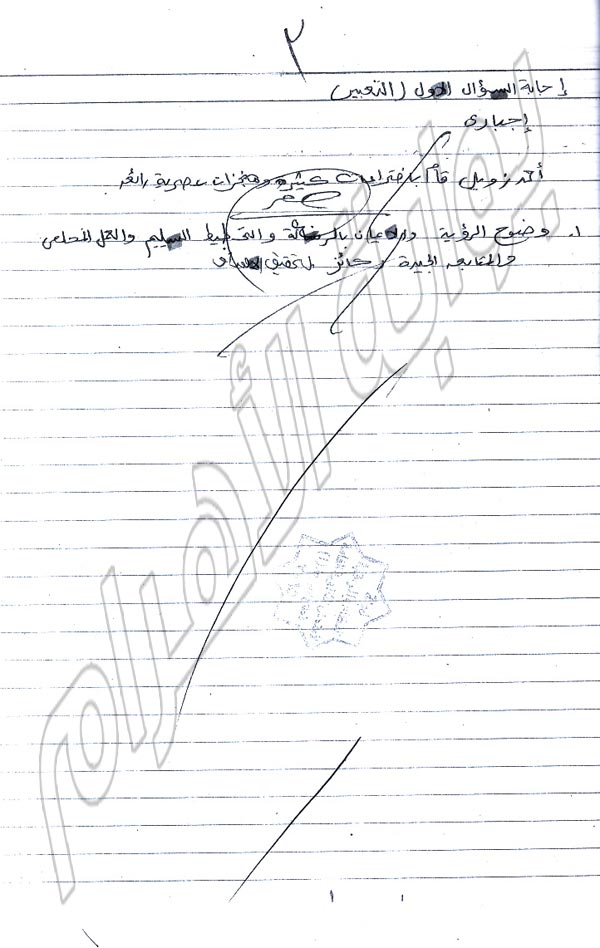 ٢
إجابة السؤال الاول (التعبير)
إجبارى
أحمد زويل قام باختراعات كثيرة ومعجزات عصرية رائعه
صفر
١. وضوح الرؤية والإيمان بالرسالة والتخطيط السليم والعمل المخلص
والمتابعه الجيدة ركائز لتحقيق
بوابة الأهرام